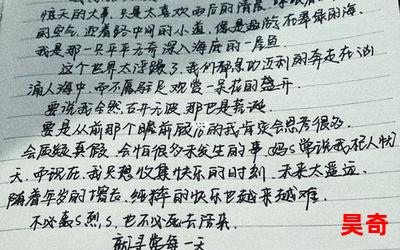 惊天的大事，只是太喜欢雨后的清晨
的空气，迎着路中间的小道，像是遨游在翠绿的海，
我是那一只平平方奇深入海底的一尾鱼
这个世界太浮躁了，我们都急功近利的奔走在汹
涌人海中，而不屑驻足观赏一朵花的盛开
要说我全然，百无禁，那也是荒诞
要是从前那个瞻前顾后的我肯定会思考很多
会质疑真假，会怕很多未发生的事，妈S常说我杞人忧
天，而现在，我只想收集快乐的时刻，未来太遥远，
随着年岁的增长，纯粹的快乐也越来越难
不必轰S烈S，也不必死去活来
寻常每一天
昊奇